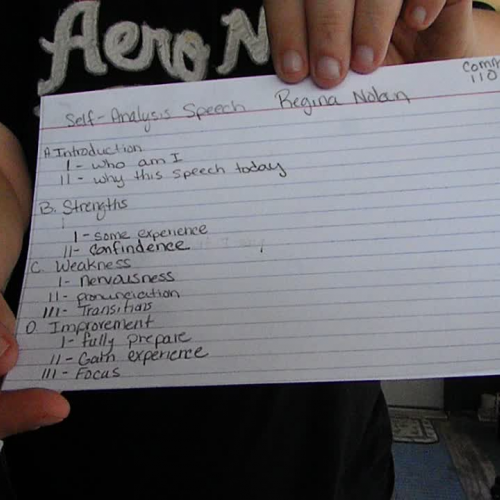 Aero N
Comm
110
Self-Analysis Speech Regina Nolan
A. Introduction
I - who am I
II - why this speech today
B. Strengths
I - some experience
II - Confindence
C. Weakness
I - nervousness
II - pronunciation
III - Transitions
D. Improvement
I - fully prepare
II - Gain experience
III - Focus